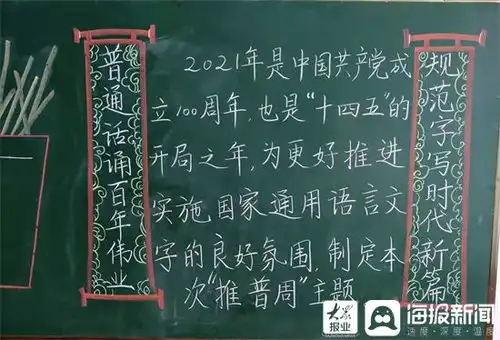 普通话诵百年伟业
2021年是中国共产党成
立100周年,也是“十四五”的
开局之年,为更好推进
实施国家通用语言文
字的良好氛围,制定本
次“推普周”主题
规范字写时代新篇
大众
报业
海报新闻
速度·深度·温度